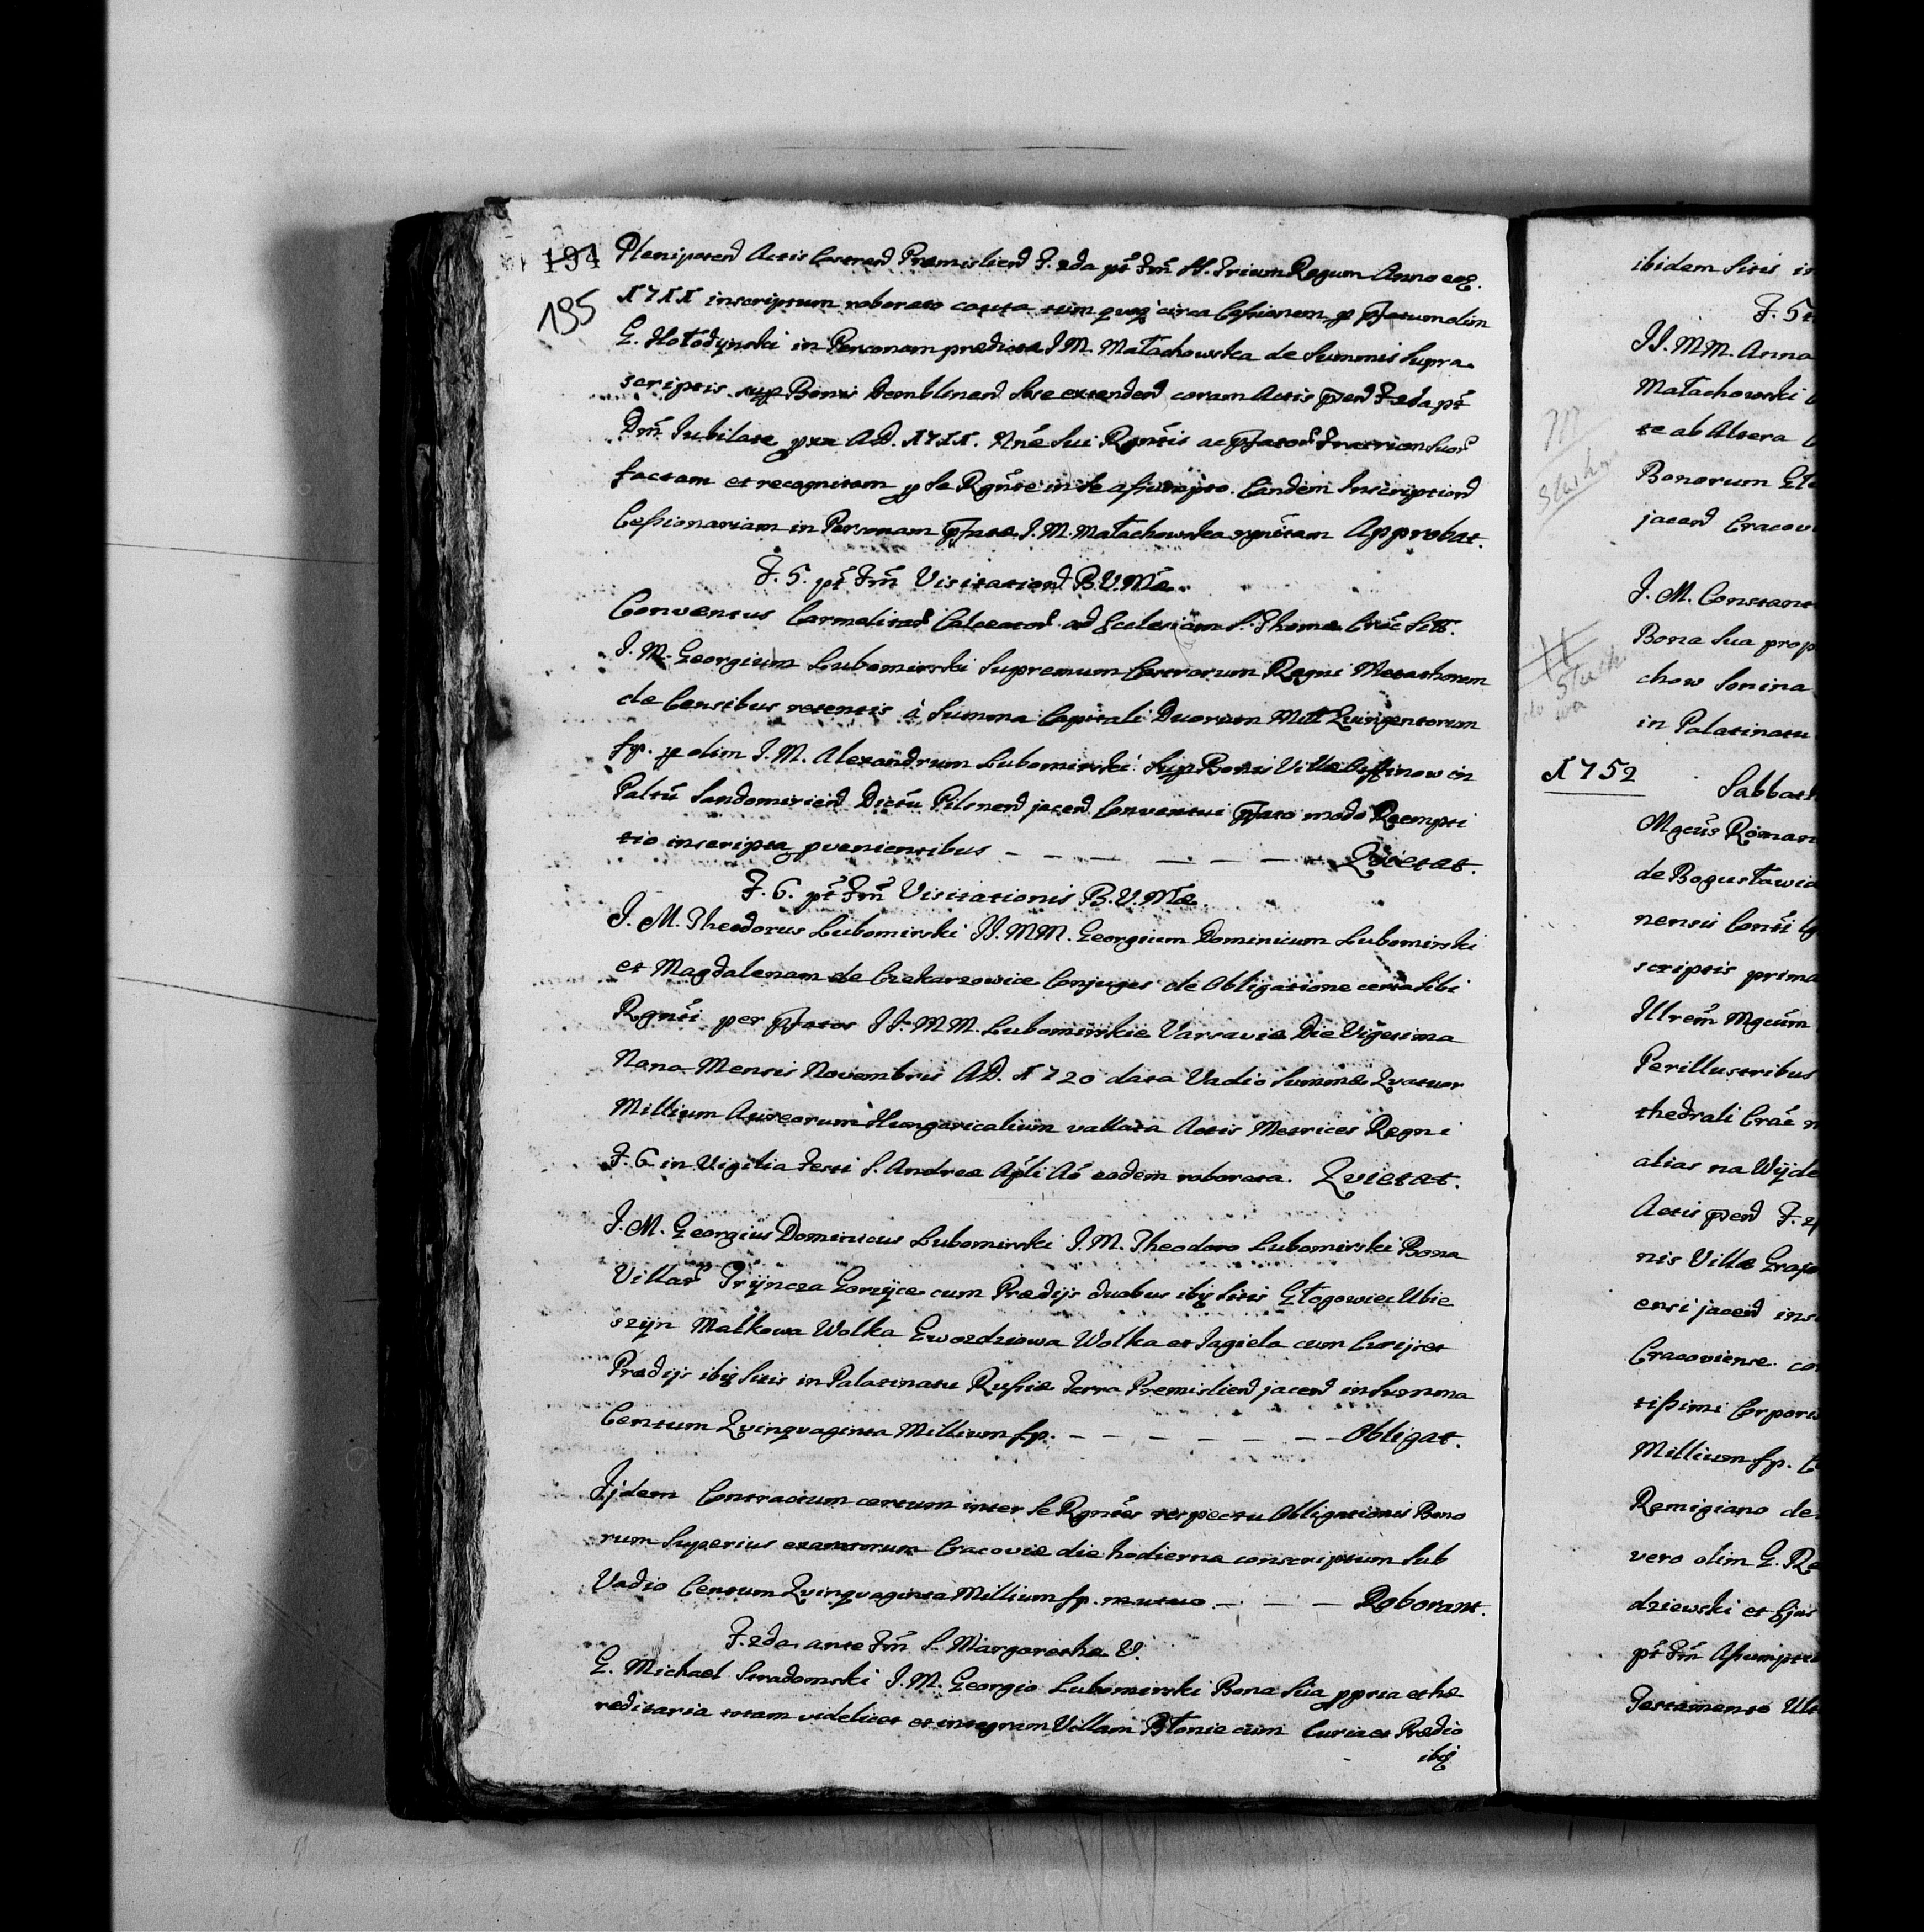 194
195
Plenipotend Actis Castrend Præmisliend F. 2da pt Fm SS. Trium Regum Anno eoq.
1711 inscriptum roborato cauta tum quoq circa Cessionem p pfatum olim
G. Hołodynski in Personam prædicta I M. Małachowska de Summis supra
scriptis sup Bonis Demblinend sese extendend coram Actis pend F 2da pt
Dm Jubilate pxa AD. 1711. Nne sui Rgntis ac pfator Fratrum suor
factam et recognitam p se Rgnte in se assumpto. Eandem Inscriptiond
Cessionariam in Personam pfatæ I. M. Małachowska rgnitam Approbat.
F. 5. pt Fm Visitationd B.V.Mæ.
Conventus Carmelitar Calceator ad Ecclesiam S. Thomæ Crac
I. M. Georgium Lubomirski Supremum Castrorum Regni Metathorem
de Censibus retentis à Summa Capitali Duorum Mill Quingentorum
fp. p olim I. M. Alexandrum Lubomirski Sup Bonis Villæ in
Paltu Sandomiriend Dictu Pilsnend jacend Conventui pfato modo Reempti
tio inscripta pvenientibus - - - - - - Quietat.
F. 6. pt Fm Visitationis B.V.Mæ
I. M. Theodorus Lubomirski II. MM. Georgium Dominicum Lubomirski
et Magdalenam de Czekarzowice Conjuges de Obligatione certa sibi
Rgnti per pfatos II. MM. Lubomirskie Varsaviæ Die Vigesima
Nona Mensis Novembris AD. 1720 data Vadio Summæ Quatuor
Millium Aureorum Hungaricalium vallata Actis Metrices Regni
F. 6 in Vigilia Festi S. Andreæ Apli Ao eodem roborata. Quietat.
I. M. Georgius Dominicus Lubomirski I. M. Theodoro Lubomirski Bona
Villar Tryncza Gorzyce cum Prædijs duobus ibiq sitis Głogowiec Ubie
szyn Malkowa Wolka Gwozdziowa Wolka et Jagiela cum Curijs et
Prædijs ibiq sitis in Palatinatu Russiæ Terra Premisliend jacend in Summa
Centum Quinquaginta Millium fp. - - - - - - Obligat.
Ijdem Contractum certum inter se Rgntes respectu Obligationis Bono
rum superius exaratorum Cracoviæ die hodierna conscriptum sub
Vadio Centum Quinquaginta Millium fp. mutuo - - - Roborant.
F. 2da ante Fm S. Margarethæ V.
G. Michael Stradomski I. M. Georgio Lubomirski Bona sua ppria et hæ
reditaria totam videlicet et integram Villam Błonie cum Curia et Prædio
ibq
ibidem sitis
F. 5t
II. MM. Anna
Małachowski
te ab Altera
Bonorum
jacend Cracov
I. M. Constant
Bona Sua prop
chow Sonina
in Palatinatu
1752
Sabbat
Mgcus Roman
de Bogusławic
nensis
scriptis prima
Illrem Mgcum
Perillustribus
thedrali Crac
alias na Wyde
Actis pend F.
nis Villæ
ensi jacend
Cracoviense
tissimi Corporis
Millium fp.
Remigiano de
vero olim G.
dziewski et Ejus
pt Fm Assumpt
Testamento